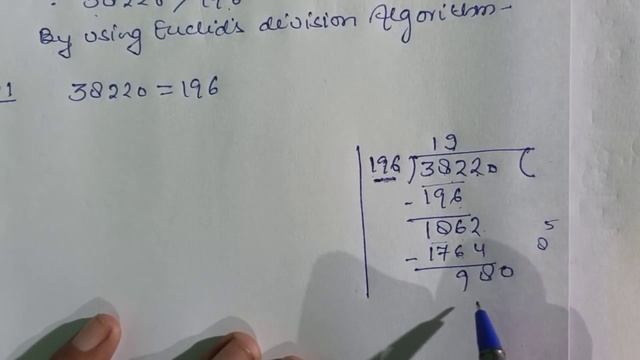 38220 > 196
By using Euclid's division Algorithm -
1 38220 = 196
19
196 ) 38220 (
- 196
1862
- 1764
980
5
8